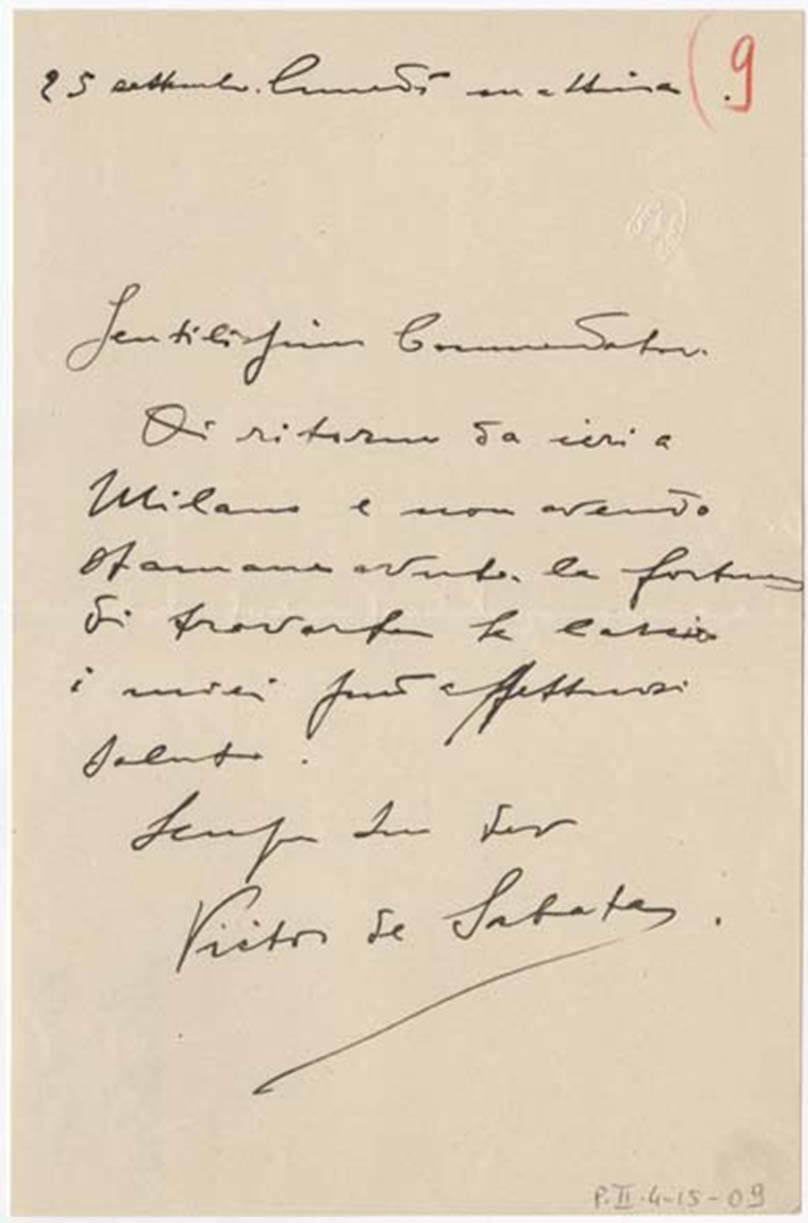 25 settembre. Lunedì mattina (9
Gentilissimo Commendatore.
Di ritorno da ieri a
Milano e non avendo
stamane avuto la fortuna
di trovarla le lascio
i miei più affettuosi
saluti.
Sempre Suo dev
Victor de Sabata.
P.II.4-15-09